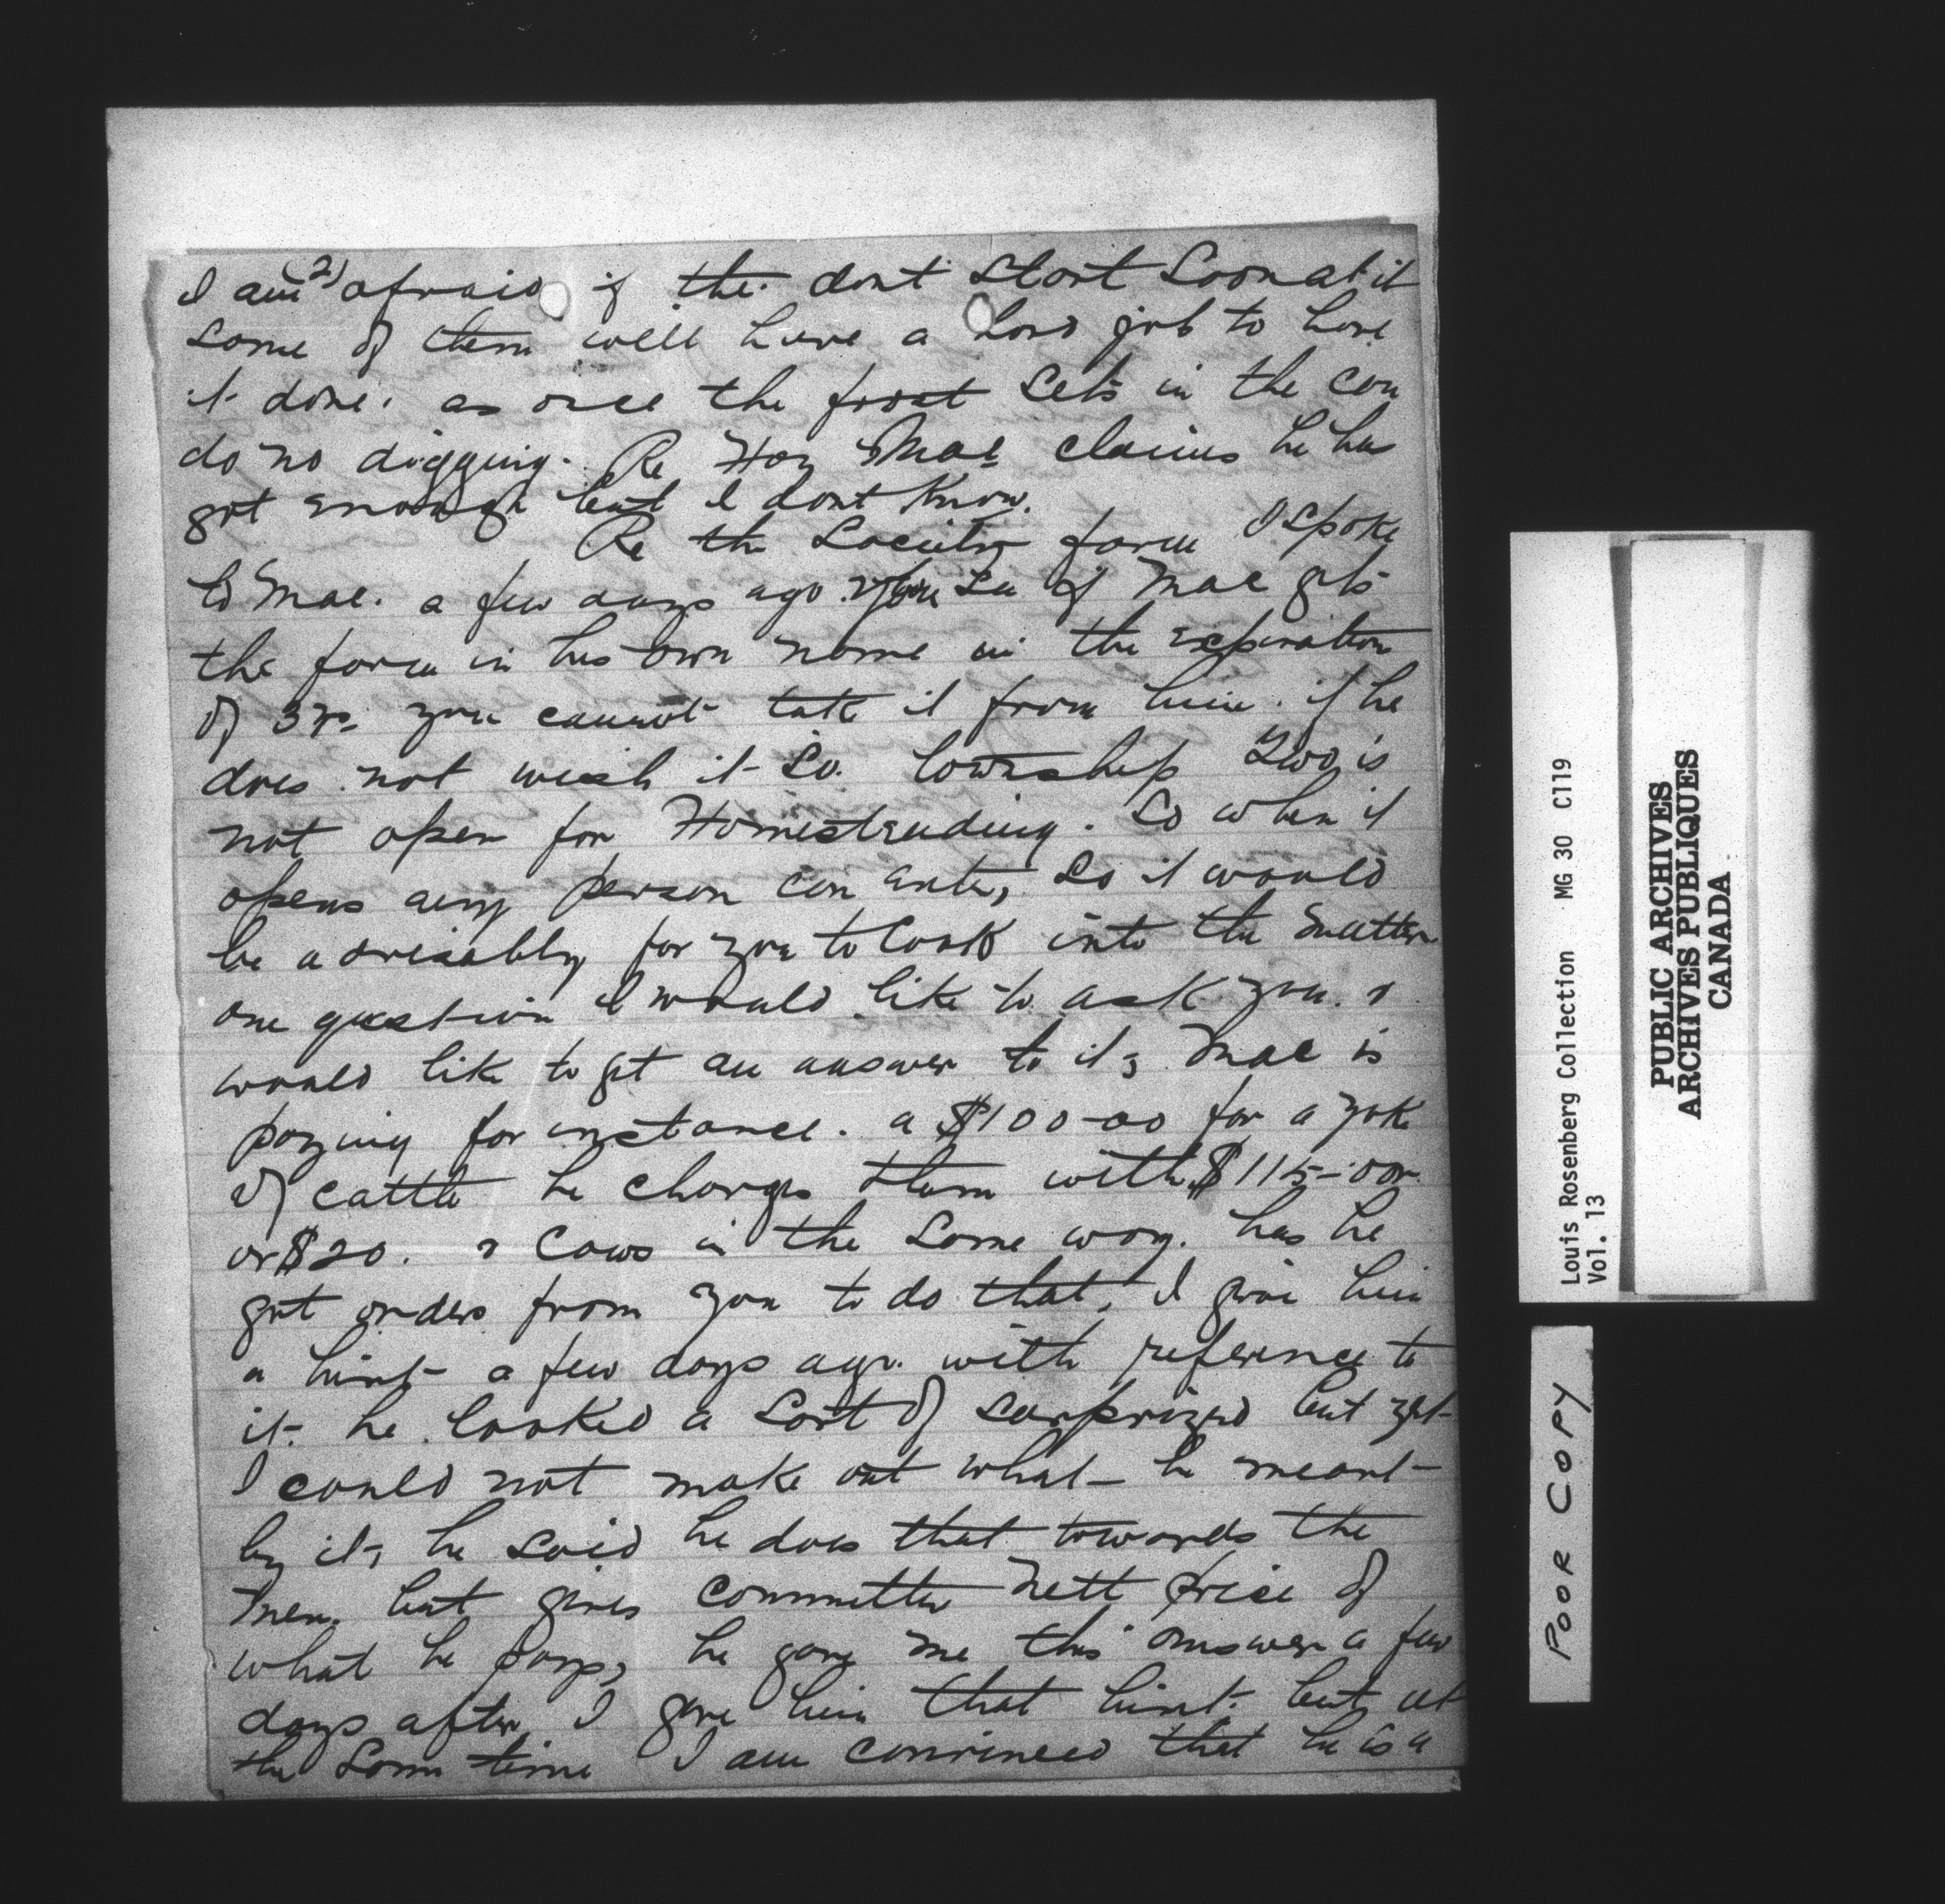 (2)
I am afraid if the. dont start soon at it
some of them will have a hard job to have
it done. as once the frost sets in the can
do no digging. Re Hay Mac claims he has
got enough but I dont know.
Re the Society farm I spoke
to Mac. a few days ago. you see if Mac gets
the farm in his own name in the expiration
of 3 yrs you cannot take it from him. if he
does not wish it so. township Two is
not open for Homesteading. so when it
opens any person can enter, so it would
be advisably for you to look into the matter
one question I would like to ask you. &
would like to get an answer to it, Mac is
paying for instance. a $100-00 for a yoke
of cattle he charges them with $115-00
or $20. & Cows in the same way. has he
got orders from you to do that, I give him
a hint a few days ago. with reference to
it. he looked a sort of surprized but yet
I could not make out what he meant
by it, he said he does that towards the
men, but gives committee nett price of
what he pays, he gave me this answer a few
days after, I gave him that hint. but at
the same time I am convinced that he is a
Louis Rosenberg Collection MG 30 C119
Vol. 13
PUBLIC ARCHIVES
ARCHIVES PUBLIQUES
CANADA
POOR COPY